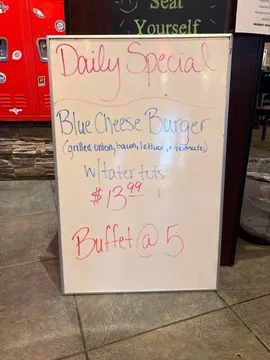 Seat
Yourself
Daily Special
Blue Cheese Burger
(grilled onion, bacon, lettuce, & tomato)
w/tater tots
$13.99
Buffet @ 5